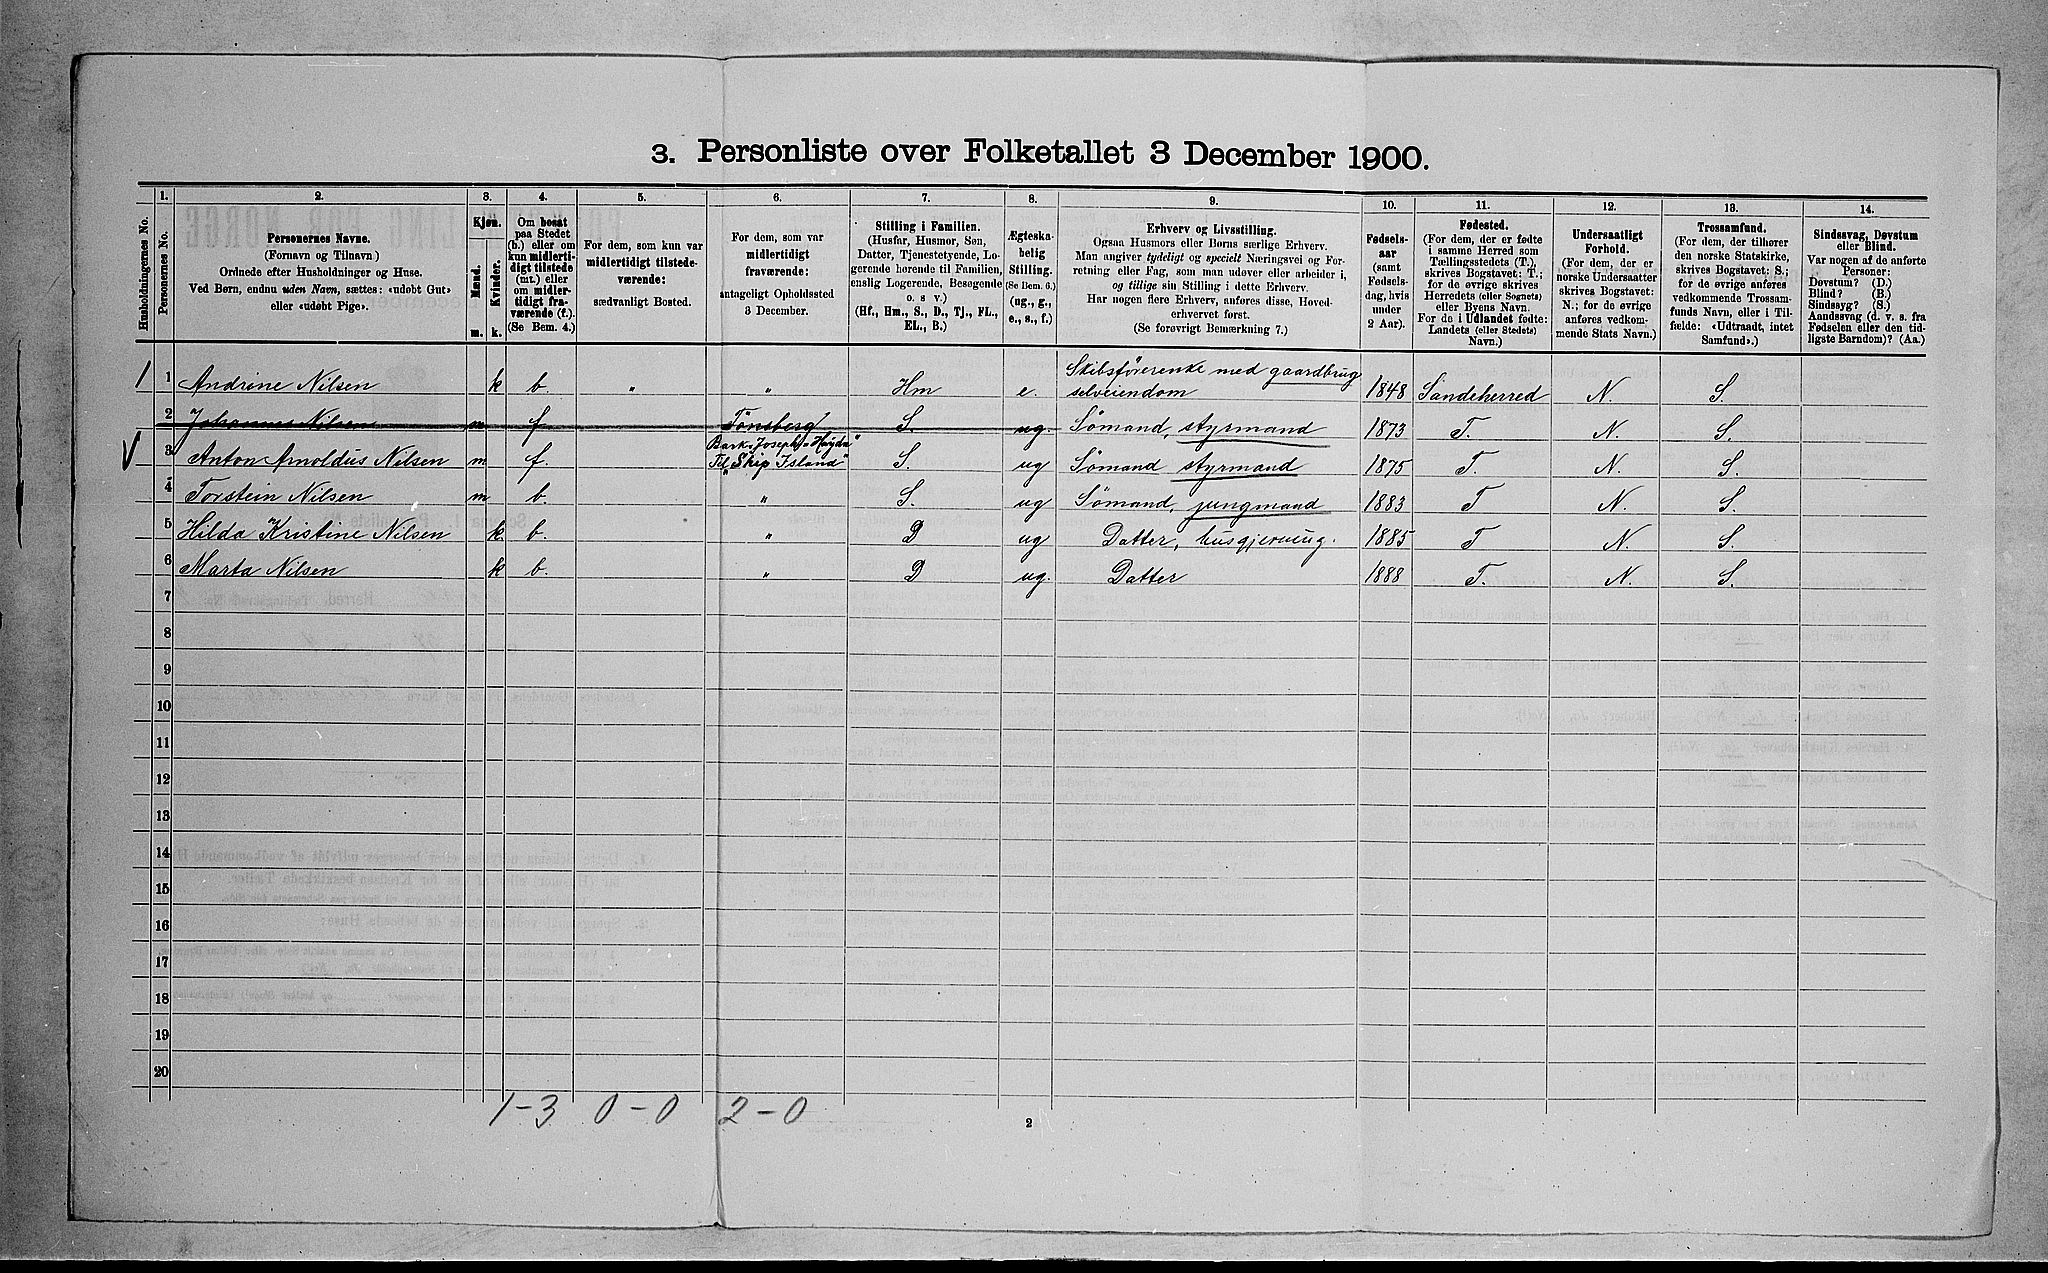 3. Personliste over Folketallet 3 December 1900.
Husholdningernes No.
1. Personernes No.
2. Personernes Navne. (Fornavn og Tilnavn) Ordnede efter Husholdninger og Huse. Ved Børn, endnu uden Navn, sættes: «udøbt Gut» eller «udøbt Pige».
3. Kjøn. Mænd. m. Kvinder. k.
4. Om bosat paa Stedet (b.) eller om kun midlertidigt tilstede (mt.) eller om midlertidigt fraværende (f.). (Se Bem. 4.)
5. For dem, som kun var midlertidigt tilstedeværende: sædvanligt Bosted.
6. For dem, som var midlertidigt fraværende: antageligt Opholdssted 3 December.
7. Stilling i Familien. (Husfar, Husmor, Søn, Datter, Tjenestetyende, Logerende hørende til Familien, enslig Logerende, Besøgende o. s v.) (Hf., Hm., S., D., Tj., FL., EL., B.)
8. Ægteskabelig Stilling. (Se Bem. 6.) (ug., g., e., s., f.)
9. Erhverv og Livsstilling. Ogsaa Husmors eller Børns særlige Erhverv. Man angiver tydeligt og specielt Næringsvei og Forretning eller Fag, som man udøver eller arbeider i, og tillige sin Stilling i dette Erhverv. Har nogen flere Erhverv, anføres disse, Hovederhvervet først. (Se forøvrigt Bemærkning 7.)
10. Fødselsaar (samt Fødselsdag, hvis under 2 Aar).
11. Fødested. (For dem, der er fødte i samme Herred som Tællingsstedets (T.), skrives Bogstavet: T.; for de øvrige skrives Herredets (eller Sognets) eller Byens Navn. For de i Udlandet fødte: Landets (eller Stedets) Navn.)
12. Undersaatligt Forhold. (For dem, der er norske Undersaatter skrives Bogstavet: N.; for de øvrige anføres vedkommende Stats Navn.)
13. Trossamfund. (For dem, der tilhører den norske Statskirke, skrives Bogstavet: S.; for de øvrige anføres vedkommende Trossamfunds Navn, eller i Tilfælde: «Udtraadt, intet Samfund».)
14. Sindssvag, Døvstum eller Blind. Var nogen af de anførte Personer: Døvstum? (D.) Blind? (B.) Sindssyg? (S.) Aandssvag (d. v. s. fra Fødselen eller den tidligste Barndom)? (Aa.)
1 1 Andrine Nilsen k b. " " Hm e. Skibsførerenke med gaardbrug selveiendom 1848 Sandeherred N. S.
2 Johannes Nilsen m f. Tönsberg S. ug. Sömand, styrmand 1873 T. N. S.
V 3 Anton Arnoldus Nilsen m f. Bark "Joseph Haydn" Til "Skip Island" S. ug Sömand styrmand 1875 T. N. S.
4 Torstein Nilsen m b. " S. ug Sömand, jungmand 1883 T N. S.
5 Hilda Kristine Nilsen k. b. " D ug Datter, husgjerning. 1885 T N. S.
6 Marta Nilsen k b. " D ug. Datter 1888 T. N. S.
7
8
9
10
11
12
13
14
15
16
17
18
19
20
1-3 0-0 2-0
2